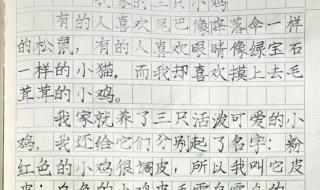 我家的三只小鸡
有的人喜欢尾巴像降落伞一样
的松鼠，有的人喜欢眼睛像绿宝石
一样的小猫，而我却喜欢摸上去毛
茸茸的小鸡。
我家就养了三只活波可爱的小
鸡，我还给它们分别起了名字：粉
红色的小鸡很调皮，所以我叫它皮
皮；白色的小鸡